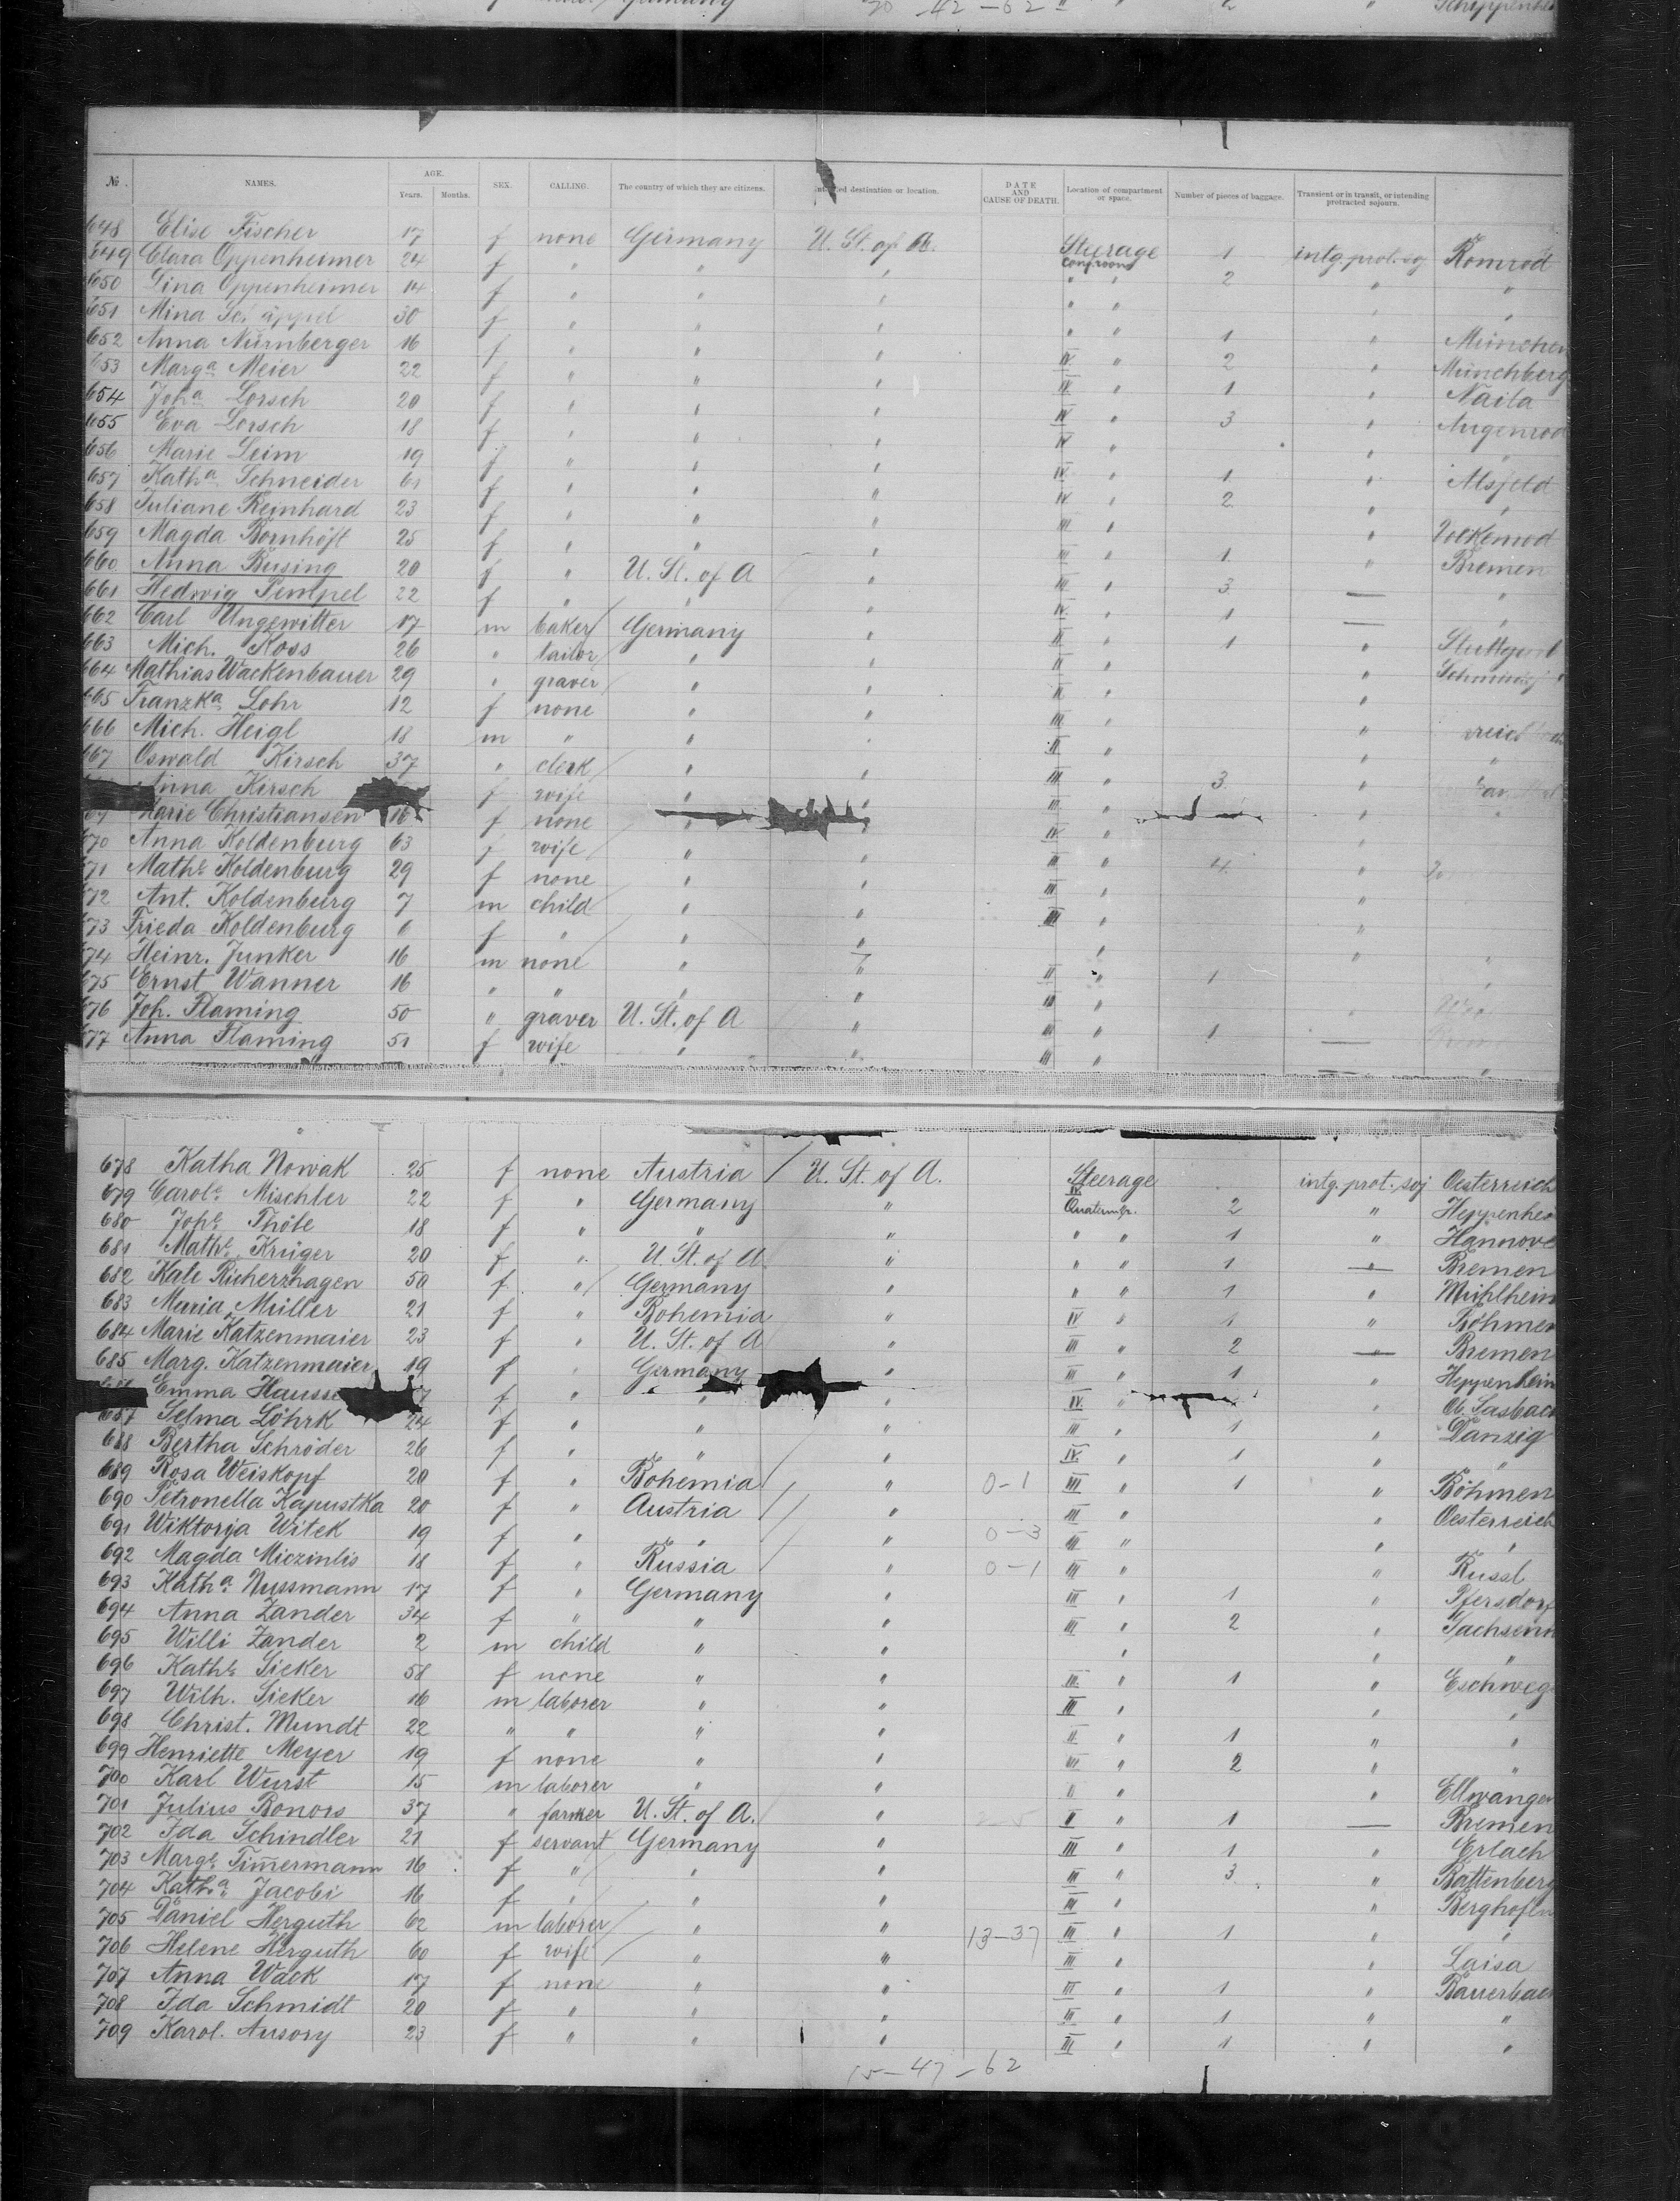 70 - 42 - 62
№. NAMES. AGE. Years. Months. SEX. CALLING. The country of which they are citizens. destination or location. DATE AND CAUSE OF DEATH. Location of compartment or space. Number of pieces of baggage. Transient or in transit, or intending protracted sojourn.
648 Elise Fischer 17 f none Germany U. St. of A. Steerage 1 intg. prot. soj Romrod
649 Clara Oppenheimer 24 f " " " " " 2 " "
650 Lina Oppenheimer 14 f " " " " " " "
651 Mina 30 f " " " " " 1 " München
652 Anna Nürnberger 16 f " " " IV " 2 " Münchberg
653 Marga Meier 22 f " " " IV " 1 " Naila
654 Joha Lorsch 20 f " " " IV " 3 " Angenrod
655 Eva Lorsch 18 f " " " IV " " "
656 Marie Leim 19 f " " " IV " 1 " Alsfeld
657 Katha Schneider 61 f " " " IV " 2 " "
658 Juliane Reinhard 23 f " " " III " "
659 Magda Bornhöft 25 f " " " III " 1 " Bremen
660 Anna Busing 20 f " U. St. of A " III " 3 — "
661 Hedwig Pempel 22 f " " " IV " 1 — "
662 Carl Ungewitter 17 m baker Germany " II " 1 " Stuttgart
663 Mich. Koss 26 " tailor " " II " "
664 Mathias Wackenbauer 29 " graver " " II " "
665 Franzka Lohr 12 f none " " III " "
666 Mich. Heigl 18 m " " " II " " "
667 Oswald Kirsch 37 " clerk " " III " 3 "
Anna Kirsch f wife " " III " " "
Marie Christiansen 16 f none " " IV " "
670 Anna Koldenburg 63 f wife " " III " 4 "
671 Mathe Koldenburg 29 f none " " III " "
672 Ant. Koldenburg 7 m child " " III " "
673 Frieda Koldenburg 6 f " " " " " "
674 Heinr. Junker 16 m none " " II " 1 "
675 Ernst Wanner 16 " " " " III " "
676 Joh. Flaming 50 " graver U. St. of A " III " 1 —
677 Anna Flaming 51 f wife " " III " — "
678 Katha Nowak 25 f none Austria U. St. of A. Steerage intg. prot. soj Oesterreich
679 Carole Mischler 22 f " Germany " 2 " Heppenhei
680 Johe Thöle 18 f " " " " " 1 " Hannove
681 Mathe Krüger 20 f " U. St. of A " " " 1 — Bremen
682 Kate Richerzhagen 50 f " Germany " " " 1 " Mühlheim
683 Maria Müller 21 f " Bohemia " IV " 1 " Böhmen
684 Marie Katzenmaier 23 f " U. St. of A " III " 2 — Bremen
685 Marg. Katzenmaier 19 f " Germany " III " 1 " Heppenheim
Emma Hausse 7 f " " " IV " " Ob. Sasbach
687 Selma Löhrk 24 f " " " III " 1 " Danzig
688 Bertha Schröder 26 f " " " IV " 1 " "
689 Rosa Weiskopf 20 f " Bohemia " 0-1 III " 1 " Böhmen
690 Petronella Kapustka 20 f " Austria " III " " Oesterreich
691 Wiktorja Witek 19 f " " " 0-3 III " " "
692 Magda Miczinlis 18 f " Russia " 0-1 III " " Russl
693 Katha Nussmann 17 f " Germany " III " 1 " Pfersdorf
694 Anna Zander 34 f " " " III " 2 " Sachsenn
695 Willi Zander 2 m child " " " " "
696 Kathe Sieker 58 f none " " III " 1 " Eschweg
697 Wilh. Sieker 16 m laborer " " III " " "
698 Christ. Mundt 22 " " " " II " 1 " "
699 Henriette Meyer 19 f none " " III " 2 " "
700 Karl Wurst 15 m laborer " " II " " Ellwangen
701 Julius Bonors 37 " farmer U. St. of A. " II " 1 — Bremen
702 Ida Schindler 21 f servant Germany " III " 1 " Erlach
703 Marge Timmermann 16 f " " " III " 3 " Battenberg
704 Katha Jacobi 16 f " " " III " " Berghofen
705 Daniel Herguth 62 m laborer " " 13-37 III " 1 " "
706 Helene Herguth 60 f wife " " III " " Laisa
707 Anna Wack 17 f none " " III " 1 " Bauerbach
708 Ida Schmidt 20 f " " " III " 1 " "
709 Karol. Ansory 23 f " " " III " 1 " "
15-47-62